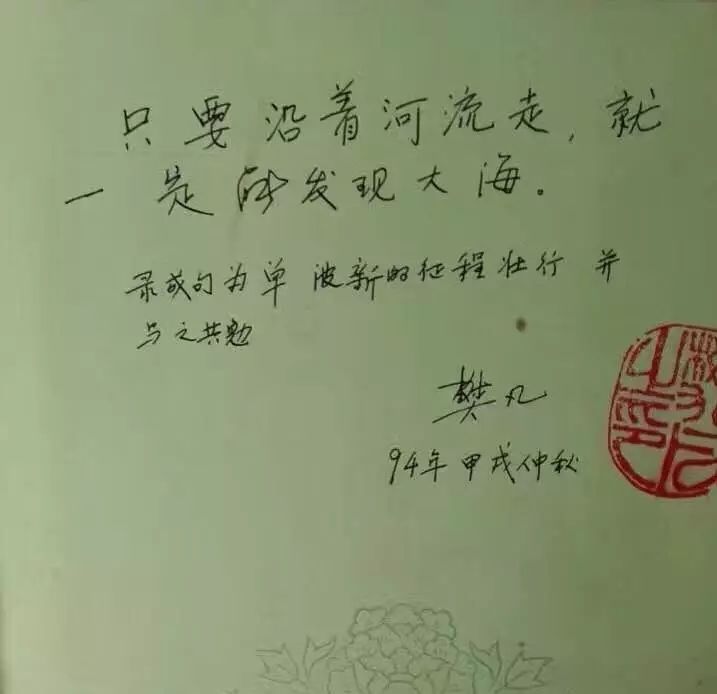 只要沿着河流走,就
一定能发现大海。
录成句为单 波新的征程壮行 并
与之共勉
樊凡
94年 甲戌仲秋